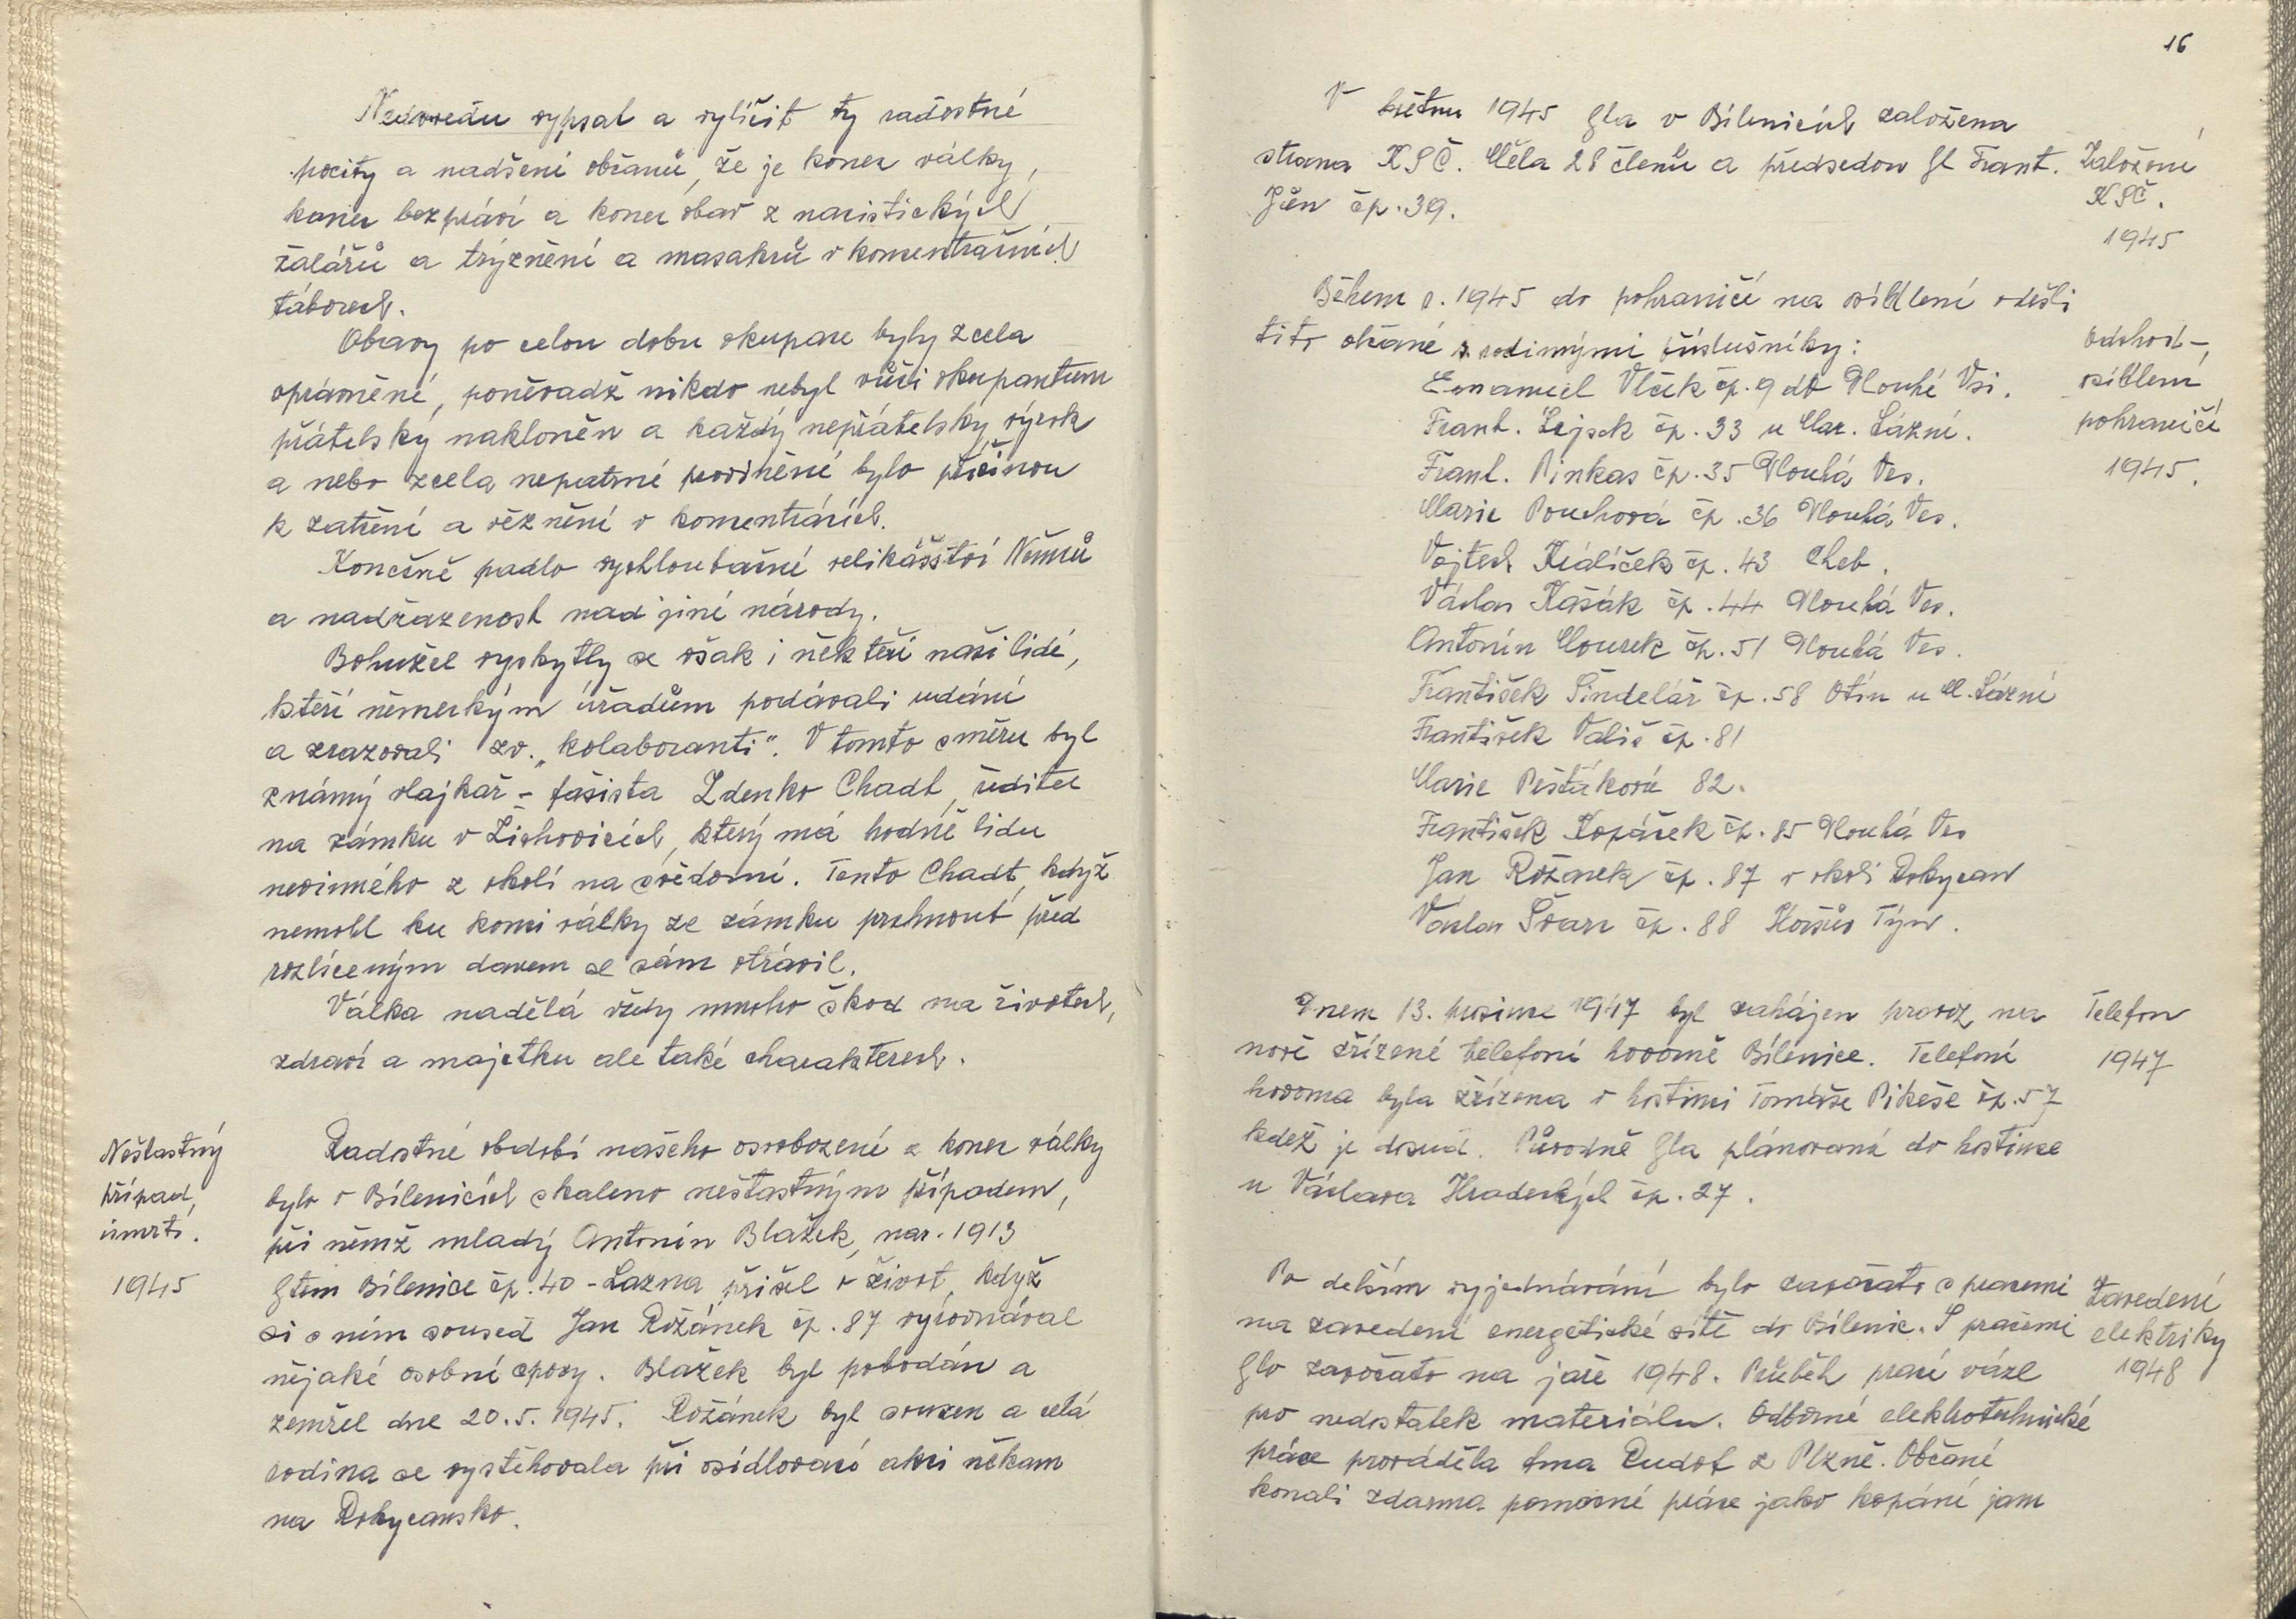 Nedovedu vypsat a vylíčit ty radostné
pocity a nadšení občanů, že je konec války,
konec bezpráví a konec obav z nacistických
žalářů a trýznění a masakrů v koncentračních
táborech.
Obavy po celou dobu okupace byly zcela
oprávněné, poněvadž nikdo nebyl vůči okupantum
přátelský nakloněn a každý nepřátelský výrok
a nebo zcela nepatrné provinění bylo příčinou
k zatčení a věznění v koncentrácích.
Konečně padlo vychloubačné velikášství Němců
a nadřazenost nad jiné národy.
Bohužel vyskytly se však i někteří naši lidé,
kteří německým úřadům podávali udání
a zrazovali zv. „kolaboranti". V tomto směru byl
známý vlajkař - fašista Zdenko Chadt, ředitel
na zámku v Žichovicích, který má hodně lidu
nevinného z okolí na svědomí. Tento Chadt, když
nemohl ku konci války ze zámku prchnout před
rozlíceným davem se sám otrávil.
Válka nadělá vždy mnoho škod na životech,
zdraví a majetku ale také charakterech.
Nešťastný
případ,
úmrtí.
1945
Radostné období našeho osvobození a konec války
bylo v Bílenicích skaleno nešťastným případem,
při němž mladý Antonín Blažek, nar. 1913
bytem Bílenice čp. 40 - Lazna, přišel o život, když
si s ním soused Jan Rožánek čp. 87 vyrovnával
nějaké osobní spory. Blažek byl pobodán a
zemřel dne 20.5. 1945. Rožánek byl souzen a celá
rodina se vystěhovala při osídlovací akci někam
na Rokycansko.
16
V květnu 1945 byla v Bílenicích založena
strana KSČ. Měla 28 členů a předsedou byl Frant.
čp. 39.
Založení
KSČ.
1945
Během r. 1945 do pohraničí na osídlení odešli
tito občané s rodinnými příslušníky:
Emanuel Vlček čp. 9 do Dlouhé Vsi.
Frant. Lejsek čp. 33 u Mar. Lázní.
Frant. Pinkas čp. 35 Dlouhá Ves.
Marie Pouchová čp. 36 Dlouhá Ves.
Vojtech Králíček čp. 43 Cheb.
Václav Kašák čp. 44 Dlouhá Ves.
Antonín Mourek čp. 51 Dlouhá Ves.
František Šindelář čp. 58 Otín u M. Lázní
František Vališ čp. 81
Marie Pešťáková 82.
František Kopáček čp. 85 Dlouhá Ves
Jan Rožánek čp. 87 v okolí Rokycan
Václav Švarc čp. 88 Horšův Týn.
Odchod -,
osídlení
pohraničí
1945.
Dnem 13. prosince 1947 byl zahájen provoz na
nově zřízené telefoní hovorně Bílenice. Telefoní
hovorna byla zřízena v hostinci Tomáše Pikeše čp. 57
kdež je dosud. Původně byla plánovaná do hostince
u Václava Hradeckých čp. 27.
Telefon
1947
Po delším vyjednávání bylo započato s pracemi
na zavedení energetické sítě do Bílenic. S pracemi
bylo započato na jaře 1948. Průběh prací vázl
pro nedostatek materiálu. Odborné elektrotechnické
práce prováděla fma Rudof z Plzně. Občané
konali zdarma pomocné práce jako kopání jam
Zavedení
elektriky
1948